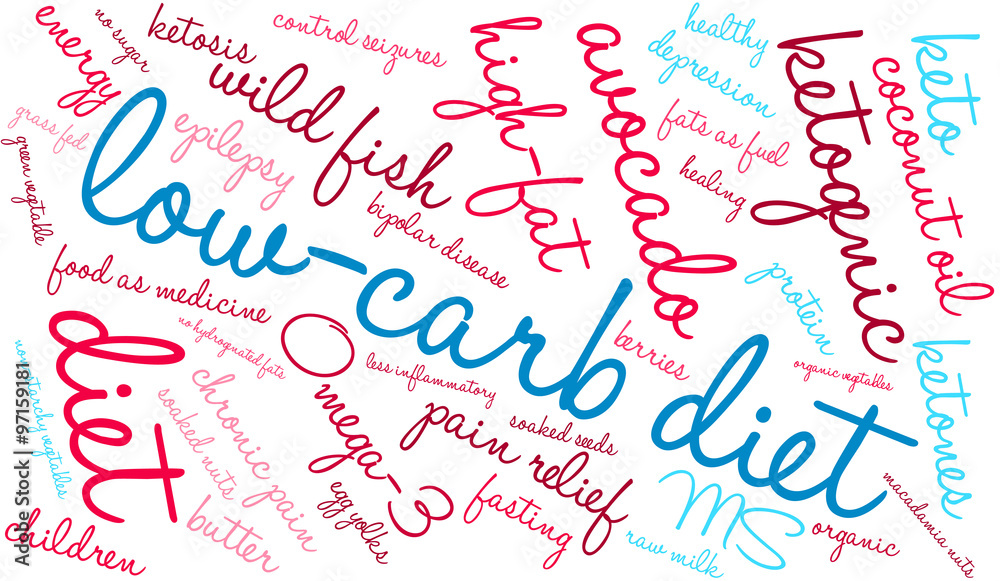 energy
no sugar
ketosis
control seizures
healthy
keto
grass fed
wild fish
high-fat
avocado
depression
ketogenic
coconut oil
green vegetable
epilepsy
fats as fuel
healing
low-carb diet
bipolar disease
food as medicine
no hydrognated fats
omega-3
less inflammatory
berries
protein
organic vegetables
ketones
no starchy vegetables
diet
chronic pain
soaked nuts
butter
pain relief
soaked seeds
egg yolks
fasting
MS
raw milk
organic
macadamia nuts
children
Adobe Stock | #97159181
Adobe Stock